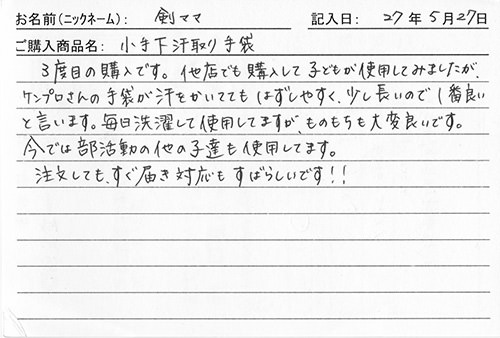 お名前(ニックネーム): 剣ママ 記入日: 27年5月27日
ご購入商品名: 小手下汗取り手袋
3度目の購入です。他店でも購入して子どもが使用してみましたが、
ケンプロさんの手袋が汗をかいててもはずしやすく、少し長いので1番良い
と言います。毎日洗濯して使用してますが、ものもちも大変良いです。
今では部活動の他の子達も使用してます。
注文しても、すぐ届き対応もすばらしいです!!